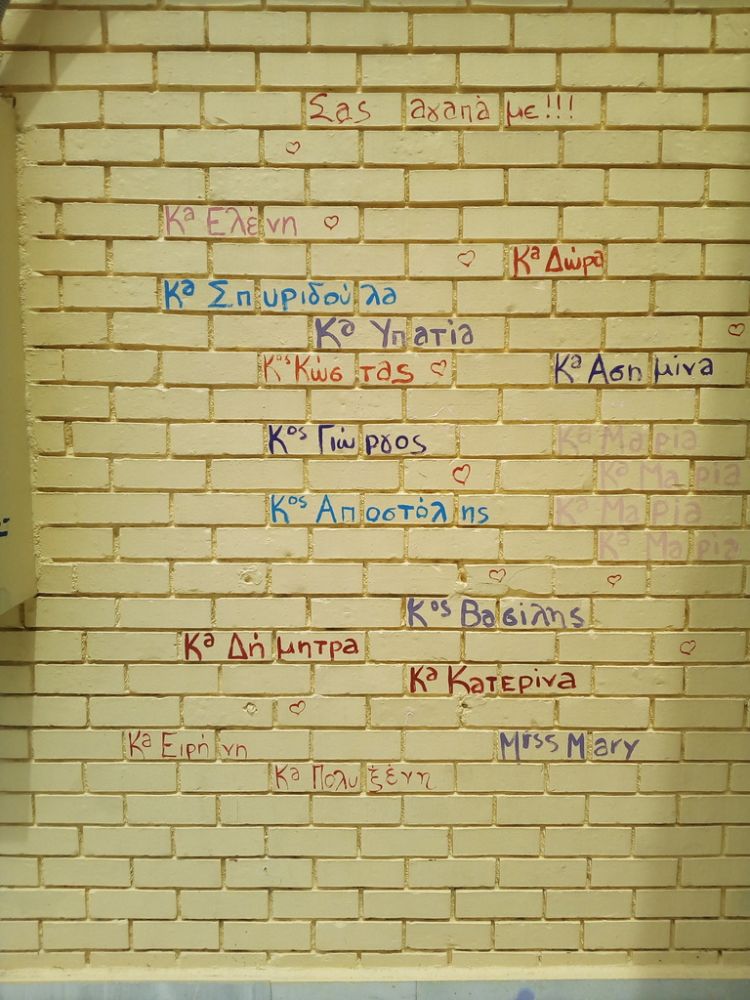 Σας αγαπάμε!!!
Κα Ελένη
Κα Δώρα
Κα Σπυριδούλα
Κα Υπατία
Κος Κώστας
Κα Ασημίνα
Κος Γιώργος
Κα Μαρία
Κα Μαρία
Κος Αποστόλης
Κα Μαρία
Κα Μαρία
Κος Βασίλης
Κα Δήμητρα
Κα Κατερίνα
Κα Ειρήνη
Miss Mary
Κα Πολυξένη